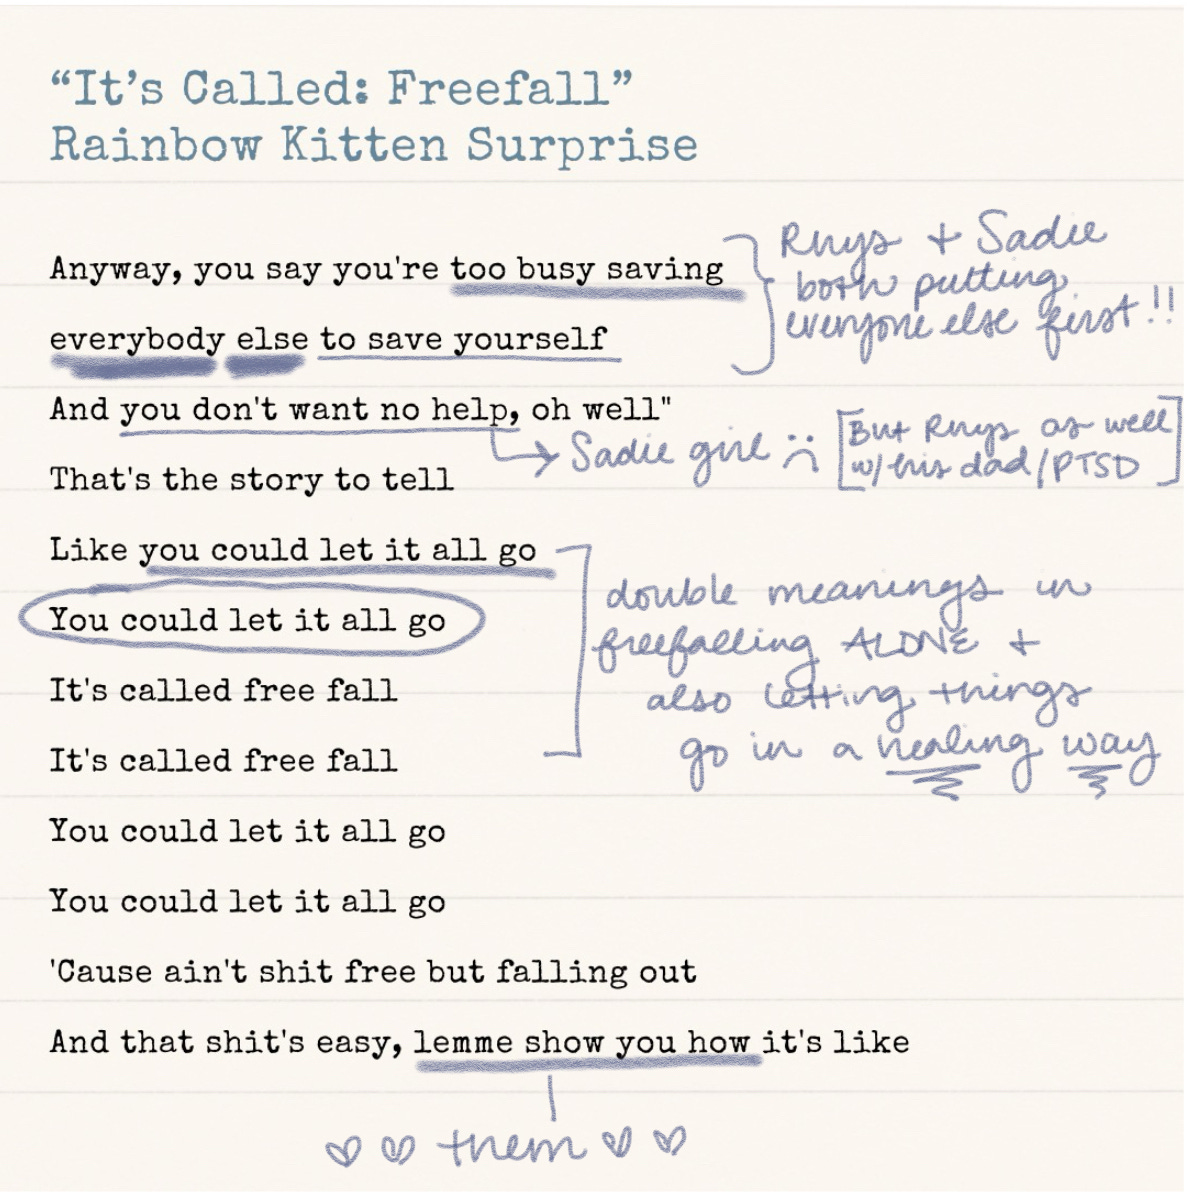 “It’s Called: Freefall”
Rainbow Kitten Surprise
Anyway, you say you're too busy saving
everybody else to save yourself
Rhys + Sadie
both putting
everyone else first!!
And you don't want no help, oh well"
Sadie girl :(
[But Rhys as well
w/ his dad/PTSD]
That's the story to tell
Like you could let it all go
You could let it all go
It's called free fall
It's called free fall
double meanings in
freefalling ALONE +
also letting things
go in a healing way
You could let it all go
You could let it all go
'Cause ain't shit free but falling out
And that shit's easy, lemme show you how it's like
♡ ♡ them ♡ ♡